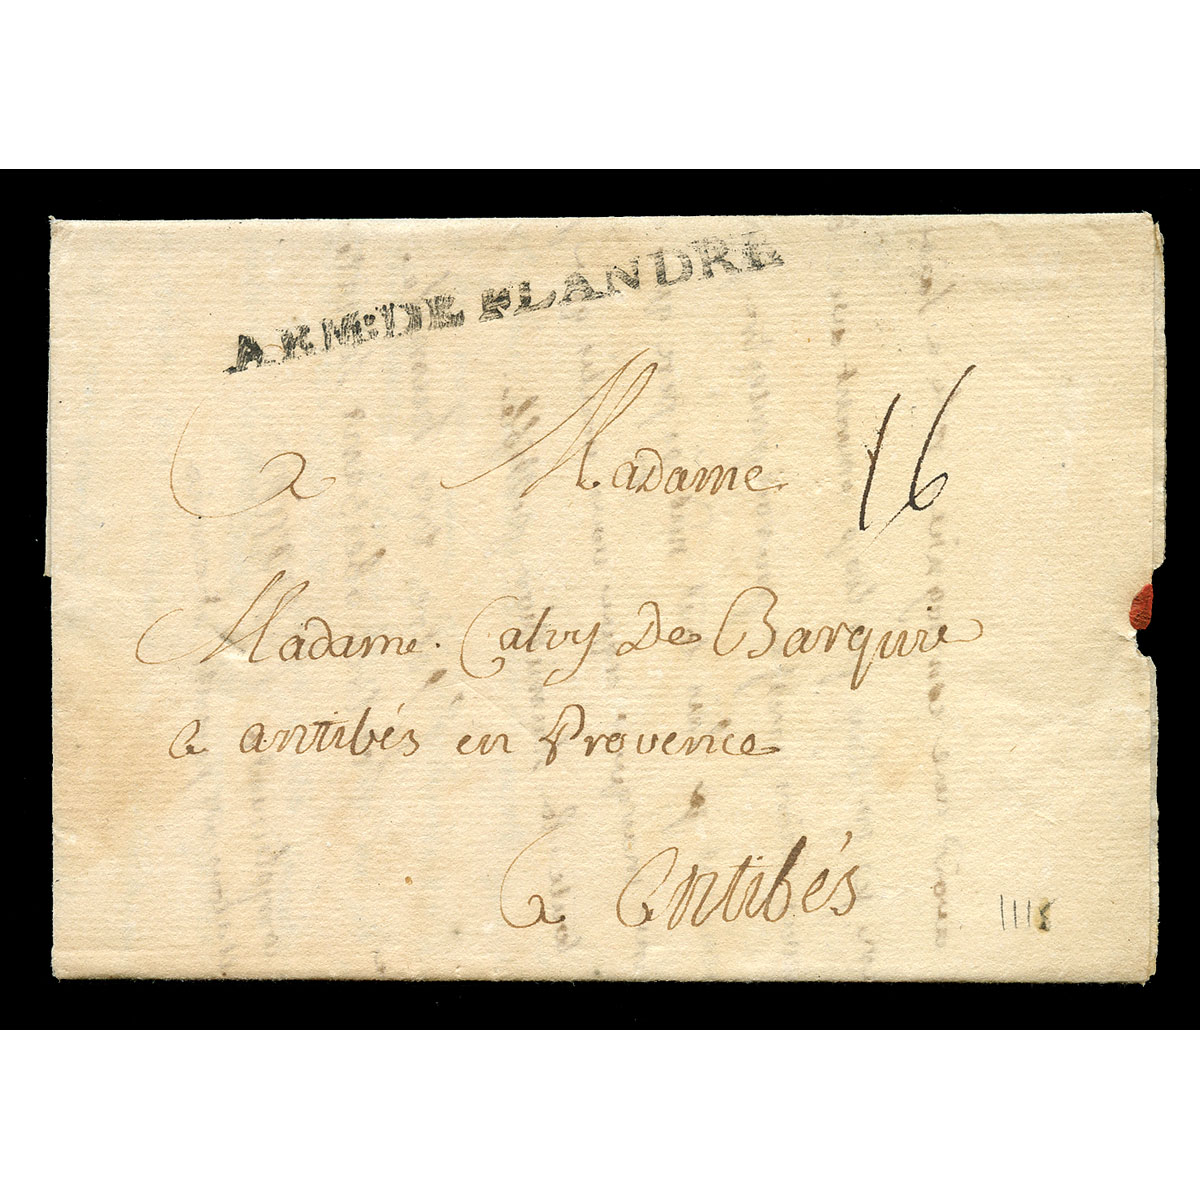 ARM:DE FLANDRE
a Madame 16
Madame Calvy de Barquie
a antibés en Provence
a Antibés